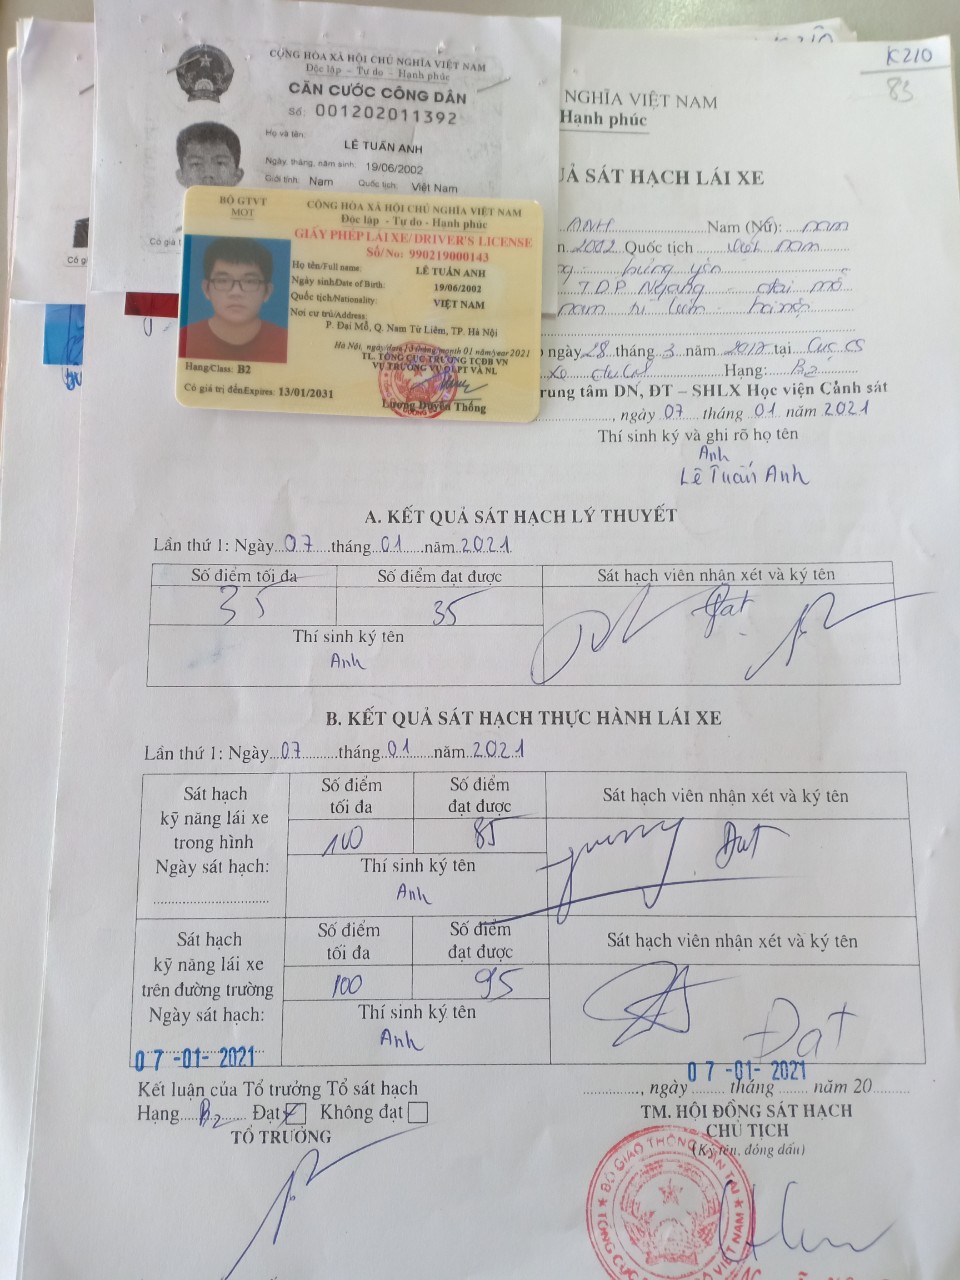 K210
83
CỘNG HÒA XÃ HỘI CHỦ NGHĨA VIỆT NAM
Độc lập - Tự do - Hạnh phúc
CĂN CƯỚC CÔNG DÂN
Số: 001202011392
Họ và tên:
LÊ TUẤN ANH
Ngày, tháng, năm sinh: 19/06/2002
Giới tính: Nam Quốc tịch: Việt Nam
Có giá t
Có gi
BỘ GTVT
MOT
CỘNG HÒA XÃ HỘI CHỦ NGHĨA VIỆT NAM
Độc lập - Tự do - Hạnh phúc
GIẤY PHÉP LÁI XE/DRIVER'S LICENSE
Số/No: 990219000143
Họ tên/Full name: LÊ TUẤN ANH
Ngày sinh/Date of Birth: 19/06/2002
Quốc tịch/Nationality: VIỆT NAM
Nơi cư trú/Address:
P. Đại Mỗ, Q. Nam Từ Liêm, TP. Hà Nội
Hà Nội, ngày/date 13 tháng/month 01 năm/year 2021
TL. TỔNG CỤC TRƯỞNG TCĐBVN
VỤ TRƯỞNG VỤ QLPT VÀ NL
Hạng/Class: B2
Có giá trị đến/Expires: 13/01/2031
Lương Duyên Thống
NGHĨA VIỆT NAM
Hạnh phúc
UẢ SÁT HẠCH LÁI XE
ANH Nam (Nữ): nam
2002 Quốc tịch Việt nam
hưng yên
TDP Ngang - đại mỗ
nam từ liêm - hà nội
ngày 28 tháng 3 năm 2017 tại Cục CS
Hạng: B2
rung tâm DN, ĐT – SHLX Học viện Cảnh sát
, ngày 07 tháng 01 năm 2021
Thí sinh ký và ghi rõ họ tên
Anh
Lê Tuấn Anh
A. KẾT QUẢ SÁT HẠCH LÝ THUYẾT
Lần thứ 1: Ngày 07 tháng 01 năm 2021
Số điểm tối đa Số điểm đạt được Sát hạch viên nhận xét và ký tên
35 35 Đạt
Thí sinh ký tên
Anh
B. KẾT QUẢ SÁT HẠCH THỰC HÀNH LÁI XE
Lần thứ 1: Ngày 07 tháng 01 năm 2021
Sát hạch
kỹ năng lái xe
trong hình
Ngày sát hạch:
Số điểm
tối đa
Số điểm
đạt được
Sát hạch viên nhận xét và ký tên
100 85 Đạt
Thí sinh ký tên
Anh
Sát hạch
kỹ năng lái xe
trên đường trường
Ngày sát hạch:
07-01-2021
Số điểm
tối đa
Số điểm
đạt được
Sát hạch viên nhận xét và ký tên
100 95 Đạt
Thí sinh ký tên
Anh
Kết luận của Tổ trưởng Tổ sát hạch
Hạng B2 Đạt Không đạt
TỔ TRƯỞNG
07-01-2021
, ngày tháng năm 20
TM. HỘI ĐỒNG SÁT HẠCH
CHỦ TỊCH
(Ký tên, đóng dấu)
BỘ GIAO THÔNG VẬN TẢI
TỔNG CỤC VIỆT NAM